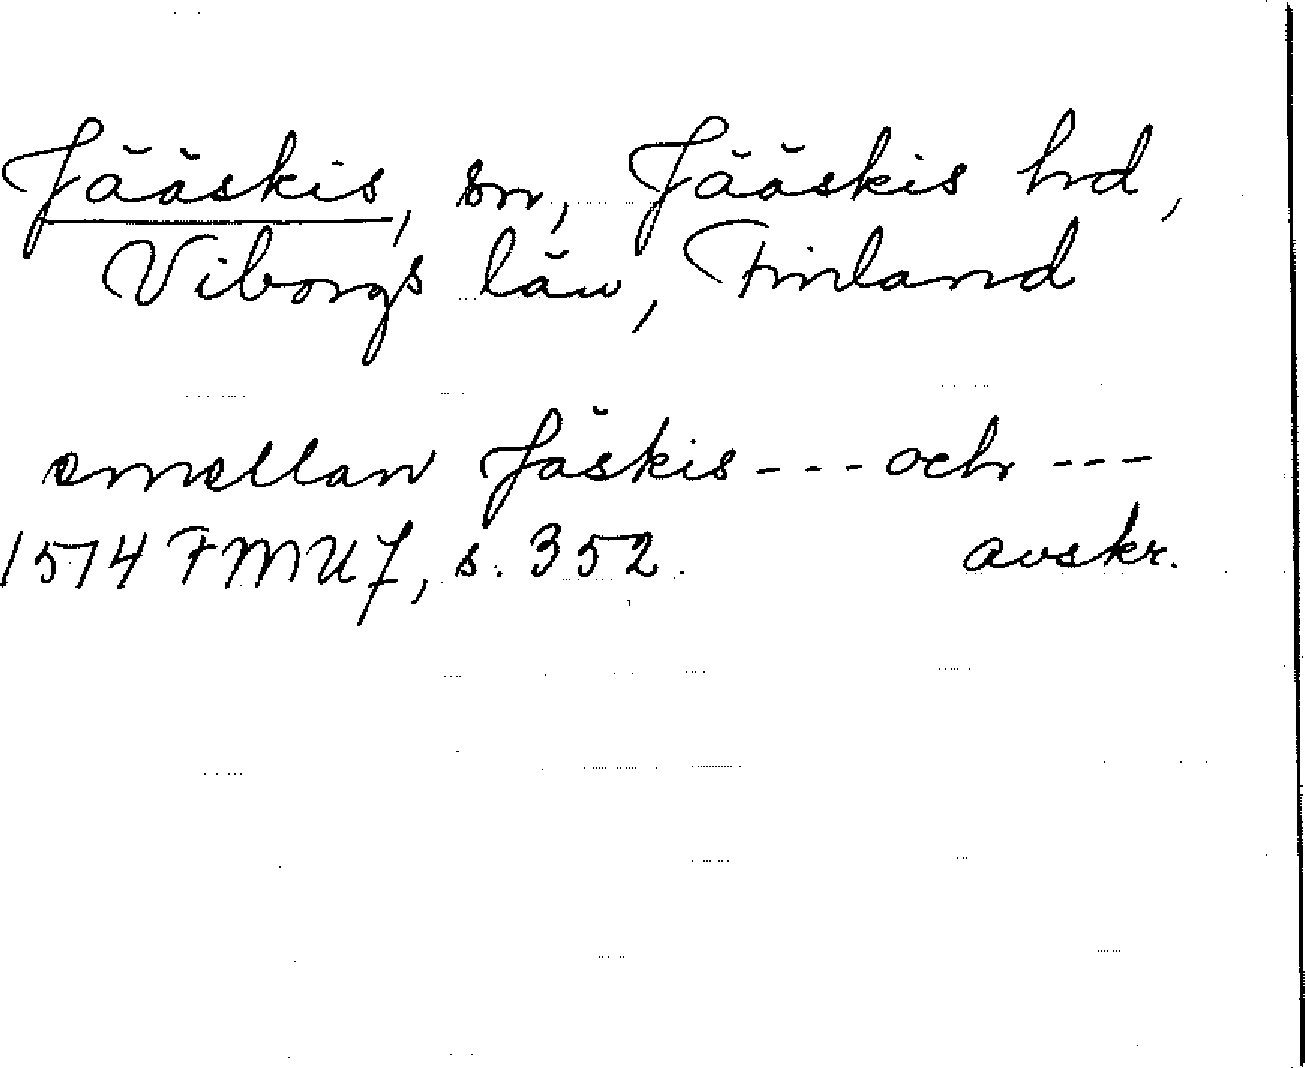 Jääskis, sn, Jääskis hd,
Viborgs län, Finland
emellan Jäskis --- och ---
1514 FMU 7, s. 352. avskr.